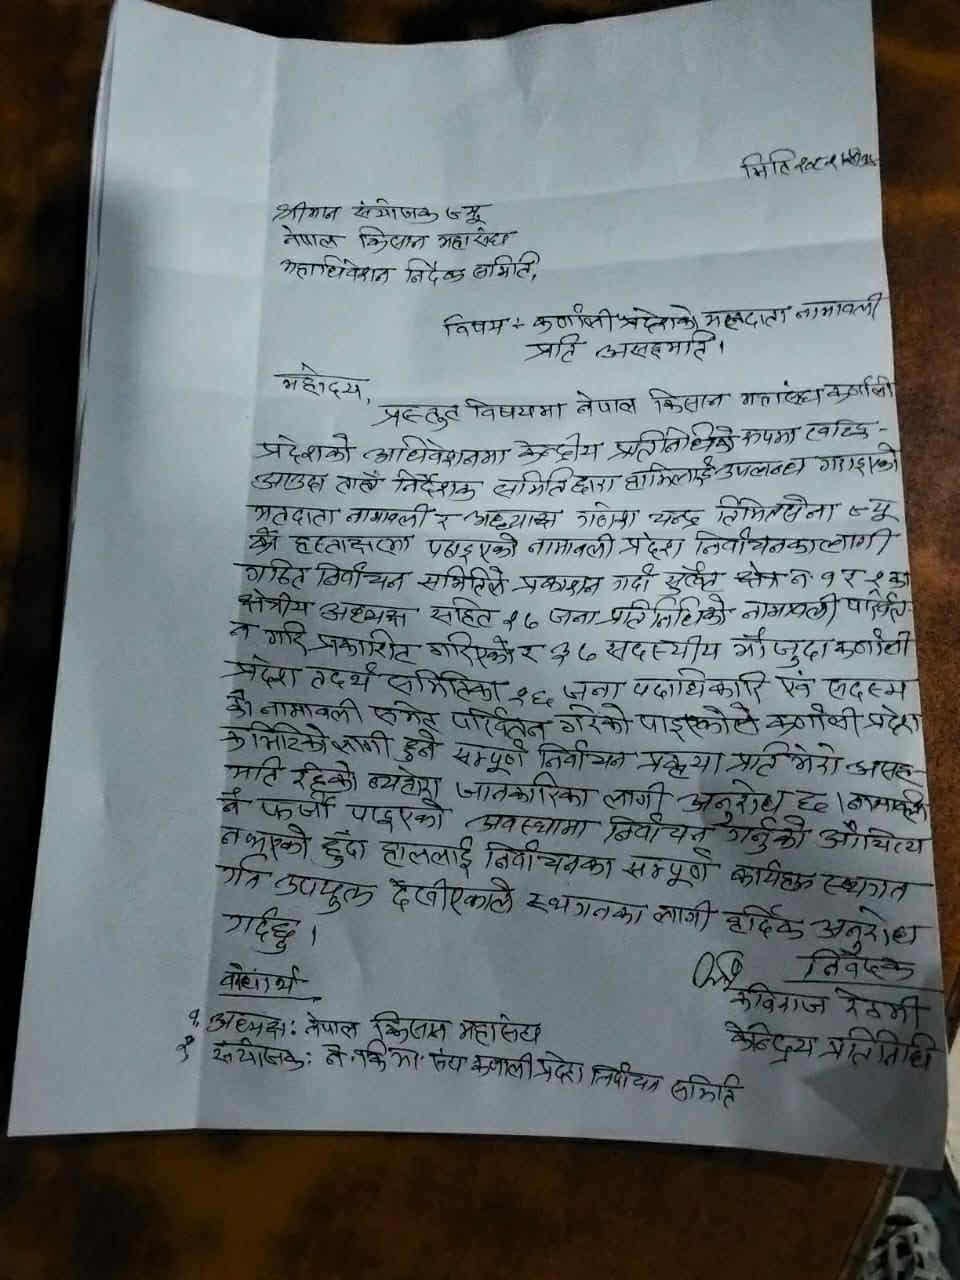 मिति २०८१
श्रीमान संयोजक ज्यू
नेपाल किसान महासंघ
महाधिवेशन निर्देशक समिति,
विषय :- कर्णाली प्रदेशको मतदाता नामावली
प्रति असहमति ।
महोदय,
प्रस्तुत विषयमा नेपाल किसान महासंघ कर्णाली
प्रदेशको अधिवेशनमा केन्द्रीय प्रतिनिधिको रूपमा
निर्देशक समितिद्वारा हामिलाई उपलब्ध गराइएको
मतदाता नामावली र अध्यक्ष चन्द्र ज्यू
को हस्ताक्षरमा पठाइएको नामावली प्रदेश निर्वाचनका लागी
गठित निर्वाचन समितिले प्रकाशन गर्दा सुर्खेत क्षेत्र न १ र २ का
क्षेत्रीय अध्यक्ष सहित १७ जना प्रतिनिधिको नामावली परिवर्त-
न गरि प्रकाशित गरिएको र ३७ सदस्यीय मौजुदा कर्णाली
प्रदेश तदर्थ समितिका १६ जना पदाधिकारि एवं सदस्य
को नामावली समेत परिवर्तन गरेको पाइएकोले कर्णाली प्रदेश
कमिटिको लागी हुने सम्पूर्ण निर्वाचन प्रकृया प्रति मेरो असह-
मति रहेको व्यहोरा जानकारिका लागी अनुरोध छ । नामावली
नै फर्जी पाइएको अवस्थामा निर्वाचन गर्नुको औचित्य
नभएको हुँदा हाललाई निर्वाचनका सम्पूर्ण कार्यहरू स्थगत
गर्न उपयुक्त देखीएकाले स्थगनका लागी हार्दिक अनुरोध
गर्दछु ।
निवेदक
बोधार्थ
कविराज रेग्मी
१. अध्यक्ष: नेपाल किसान महासंघ
केन्द्रिय प्रतिनिधि
२ संयोजक: ने कि म संघ कर्णाली प्रदेश निर्वाचन समिति